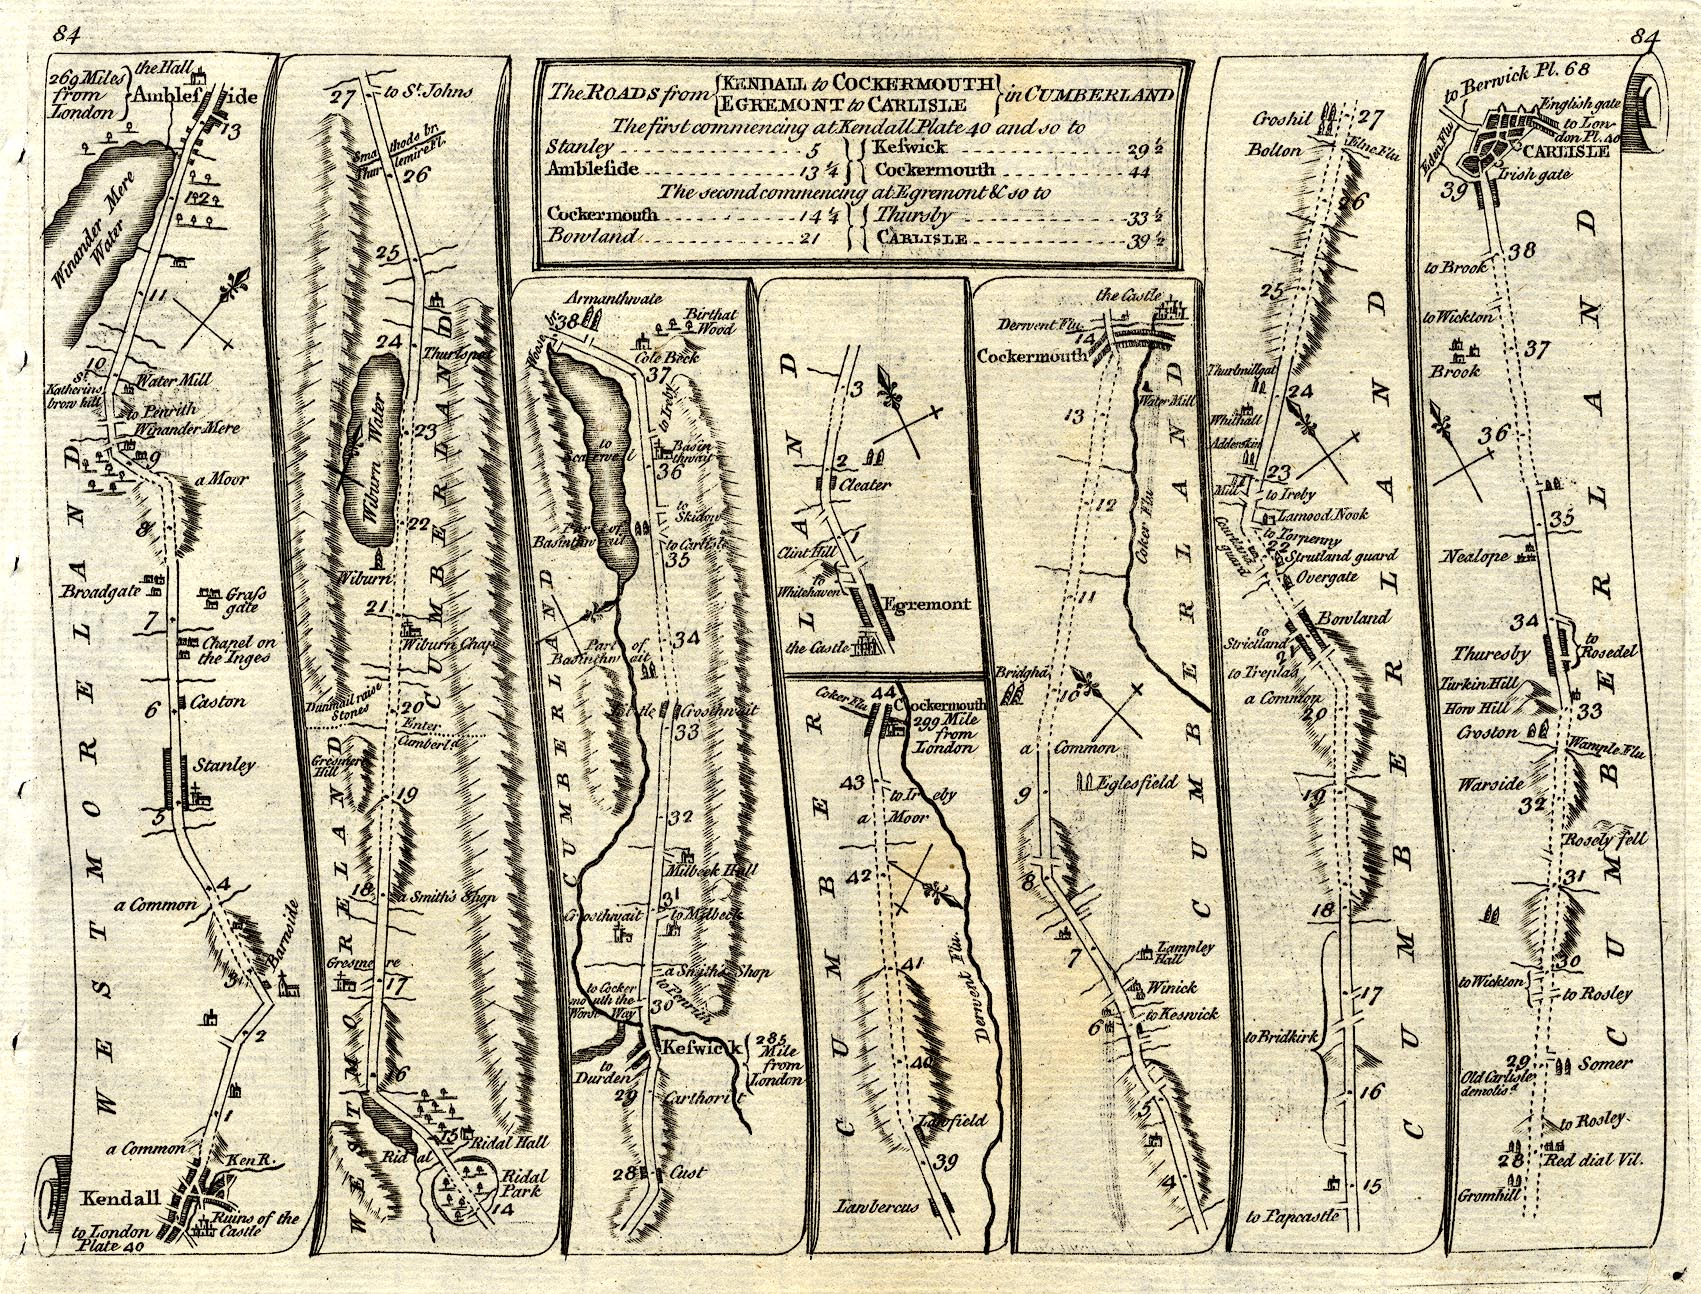 84
84
The ROADS from {KENDALL to COCKERMOUTH
EGREMONT to CARLISLE} in CUMBERLAND
The first commencing at Kendall Plate 40 and so to
Stanley 5 Keswick 29½
Ambleside 13¼ Cockermouth 44
The second commencing at Egremont & so to
Cockermouth 14¼ Thursby 33½
Bowland 21 CARLISLE 39½
269 Miles
from
London
the Hall
Ambleside
13
12
Winander Mere
Water
11
10
St Katherins
brow hill
Water Mill
to Penrith
Winander Mere
9
a Moor
8
Broadgate
Grass
gate
7
Chapel on
the Inges
Caston
6
Stanley
5
4
a Common
Barnside
3
2
1
a Common
Ken R.
Kendall
Ruins of the
Castle
to London
Plate 40
WESTMORELAND
27
to St. Johns
26
25
24
Thurlspot
Wiburn Water
23
22
Wiburn
21
Wiburn Chap
Dunmail raise
Stones
20
Enter
Cumberld
Gresmere
Hill
19
18
a Smith's Shop
Gresmere
17
16
15
Ridal Hall
Ridal
Ridal
Park
14
CUMBERLAND
WESTMORELAND
Armanthwate
38
Birthat
Wood
Cole Beck
37
to Ireby
Basin
thwait
36
to
Skidow
to Carlisle
35
Part of
Basinthwait
34
Part of
Basinthwait
Crosthwait
33
32
Milbeck Hall
31
Crosthwait
to Milbeck
a Smith's Shop
to Cocker
mouth the
Worst Way
30
to Penrith
Keswick
285
Mile
from
London
to
Durden
29
Carthorist
28
Cust
CUMBERLAND
3
2
Cleater
1
Clint Hill
to
Whitehaven
Egremont
the Castle
Coker Flu
44
Cockermouth
299 Mile
from
London
43
to Ireby
a Moor
42
41
Derwent Flu.
40
Lawfield
39
Lawbercus
CUMBERLAND
the Castle
Derwent Flu.
14
Cockermouth
Water Mill
13
12
Coker Flu
11
Bridghá
10
a Common
Eglesfield
9
8
7
Lampley
Hall
Winick
to Keswick
6
5
4
CUMBERLAND
Croshil
27
Bolton
Elne Flu
26
25
Thurtmillgat
24
Whithall
Adderskin
23
Mill
to Ireby
Lamood Nook
to Torpenny
22
Strutland guard
Courtland
guard
Overgate
Bowland
to
Stricland
21
to Treplad
a Common
20
19
18
17
to Bridkirk
16
15
to Papcastle
CUMBERLAND
to Berwick Pl. 68
English gate
to Lon-
don Pl. 40
Eden Flu
CARLISLE
Irish gate
39
38
to Brook
to Wickton
37
Brook
36
35
Nealope
34
to
Rosedel
Thuresby
Turkin Hill
How Hill
33
Croston
Wample Flu
Warside
32
Rosely fell
31
30
to Wickton
to Rosley
29
Somer
Old Carlisle
demolisd
to Rosley
28
Red dial Vil.
Gromhill
CUMBERLAND